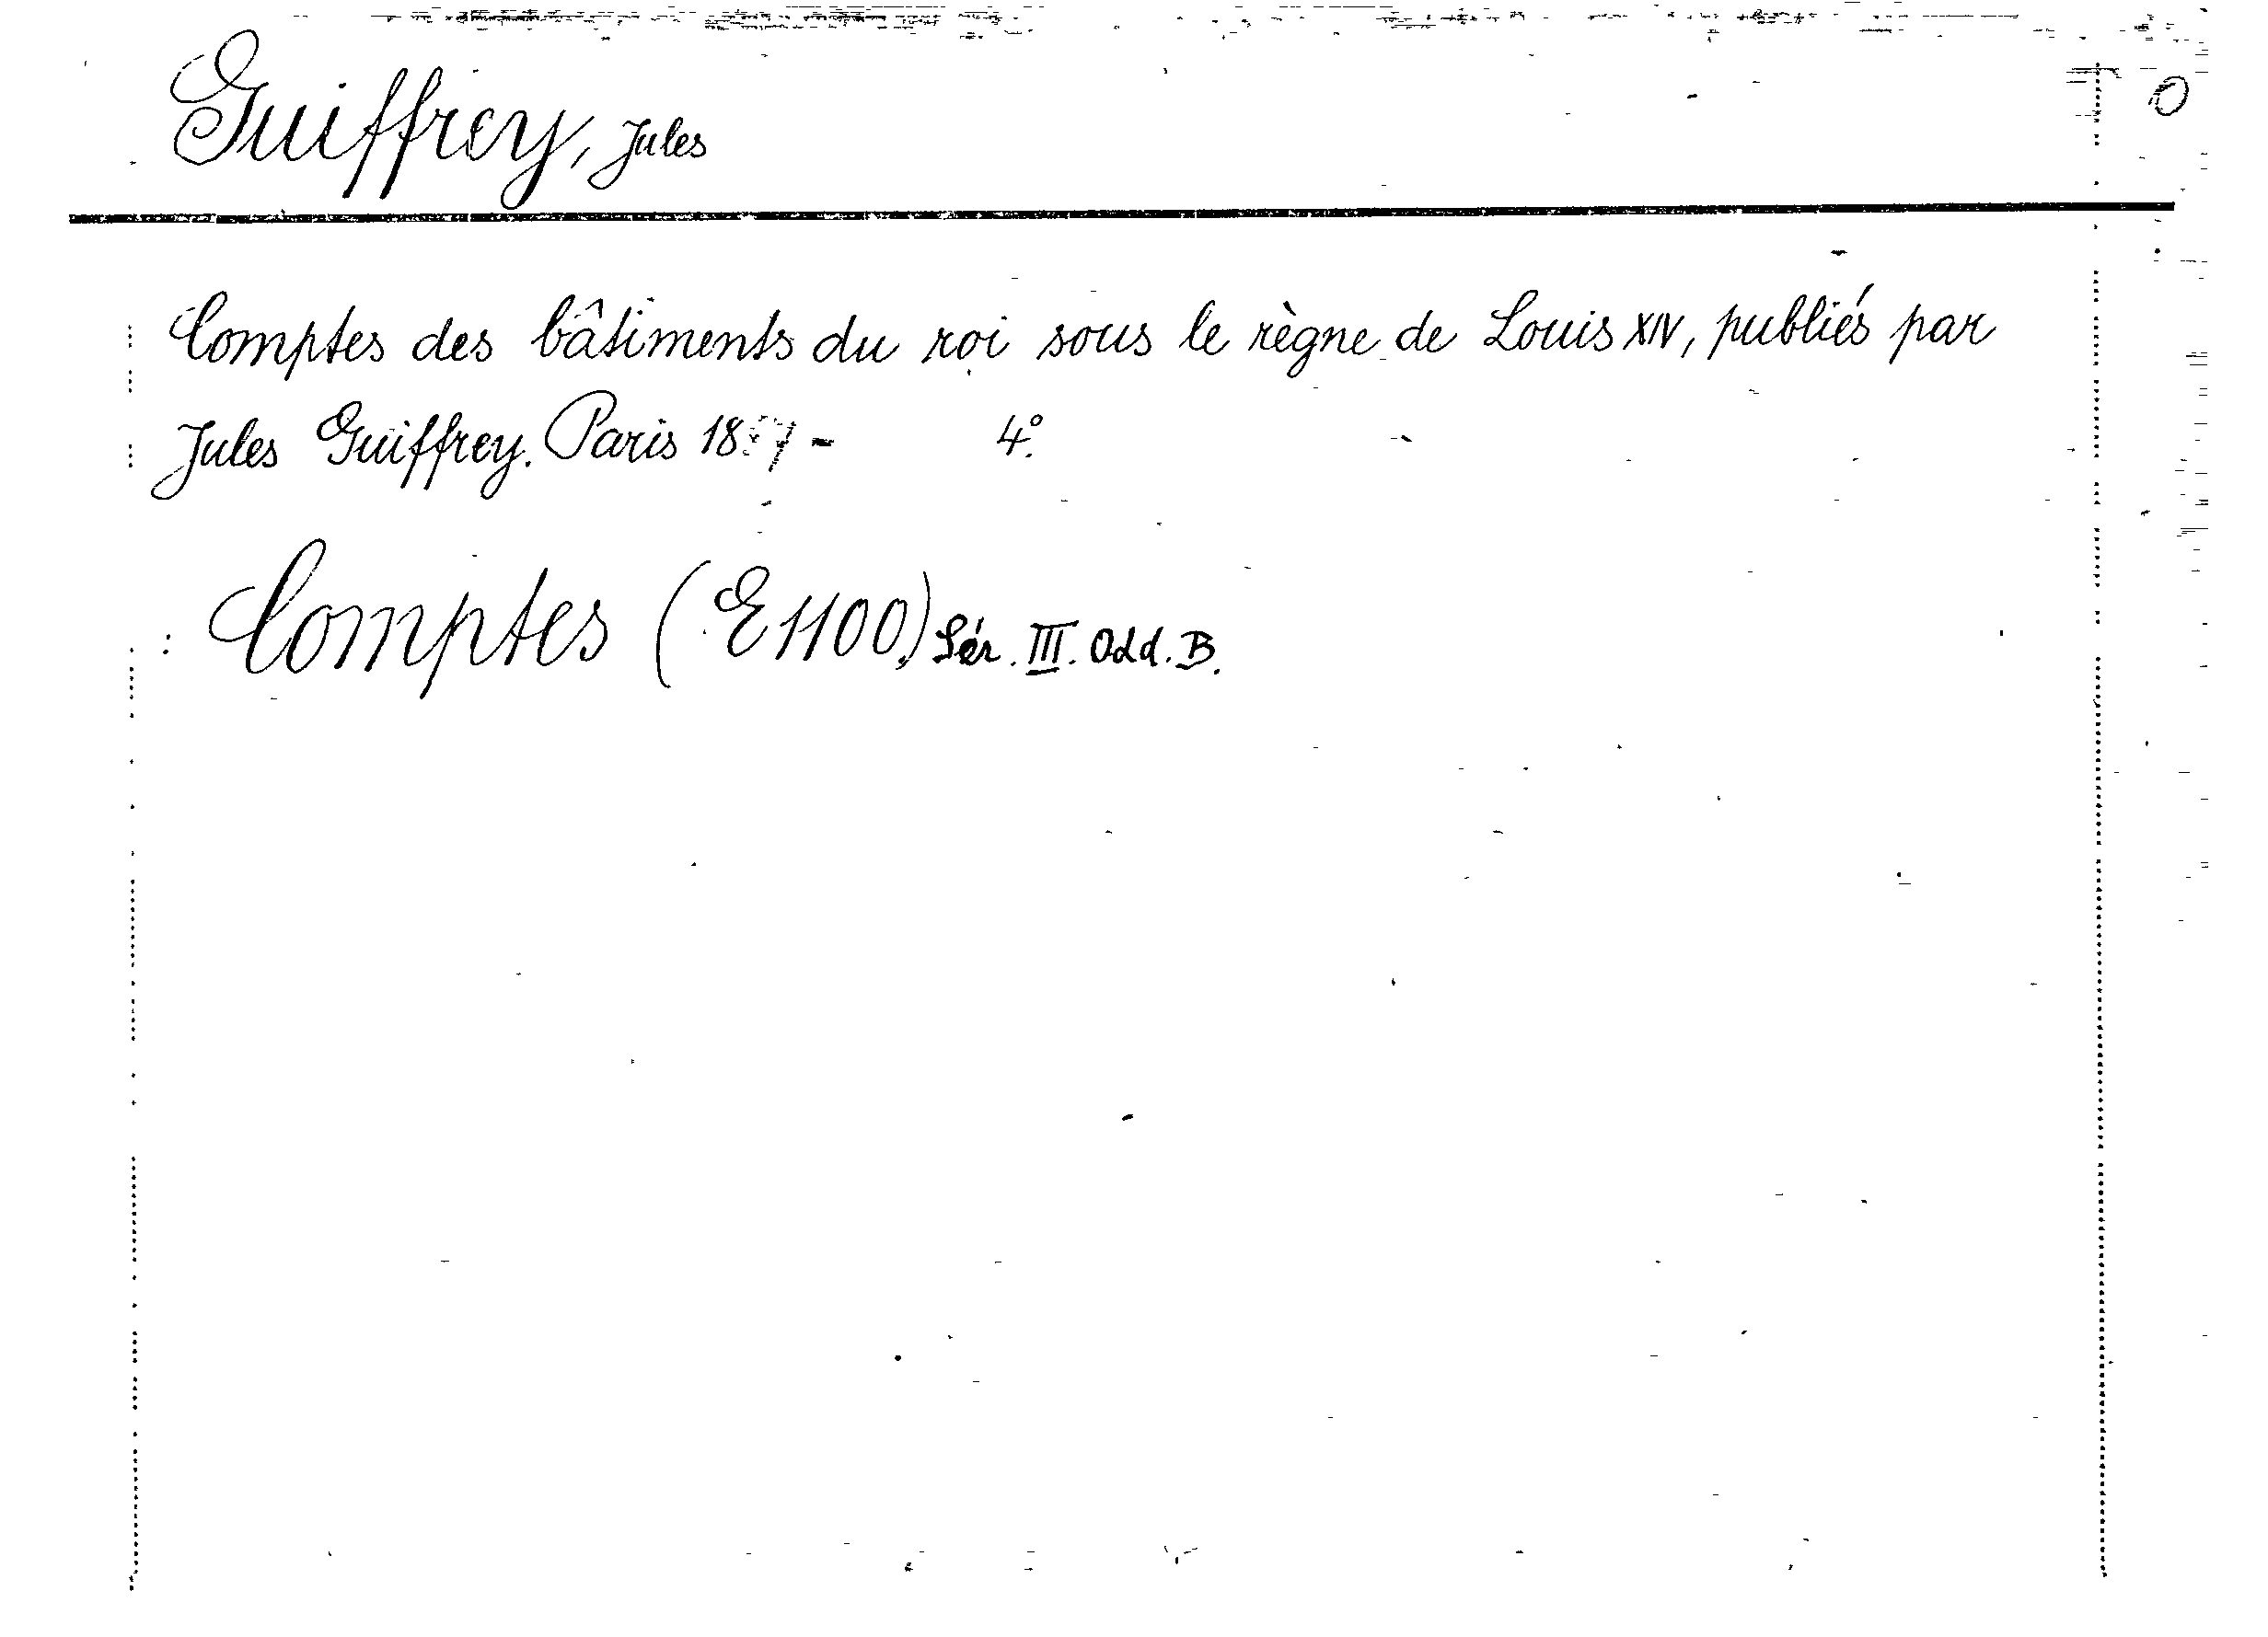 Guiffrey, Jules
O
Comptes des bâtiments du roi sous le règne de Louis XIV, publiés par
Jules Guiffrey. Paris - 4º.
Comptes (E1100) Sér. III. Odd. B.